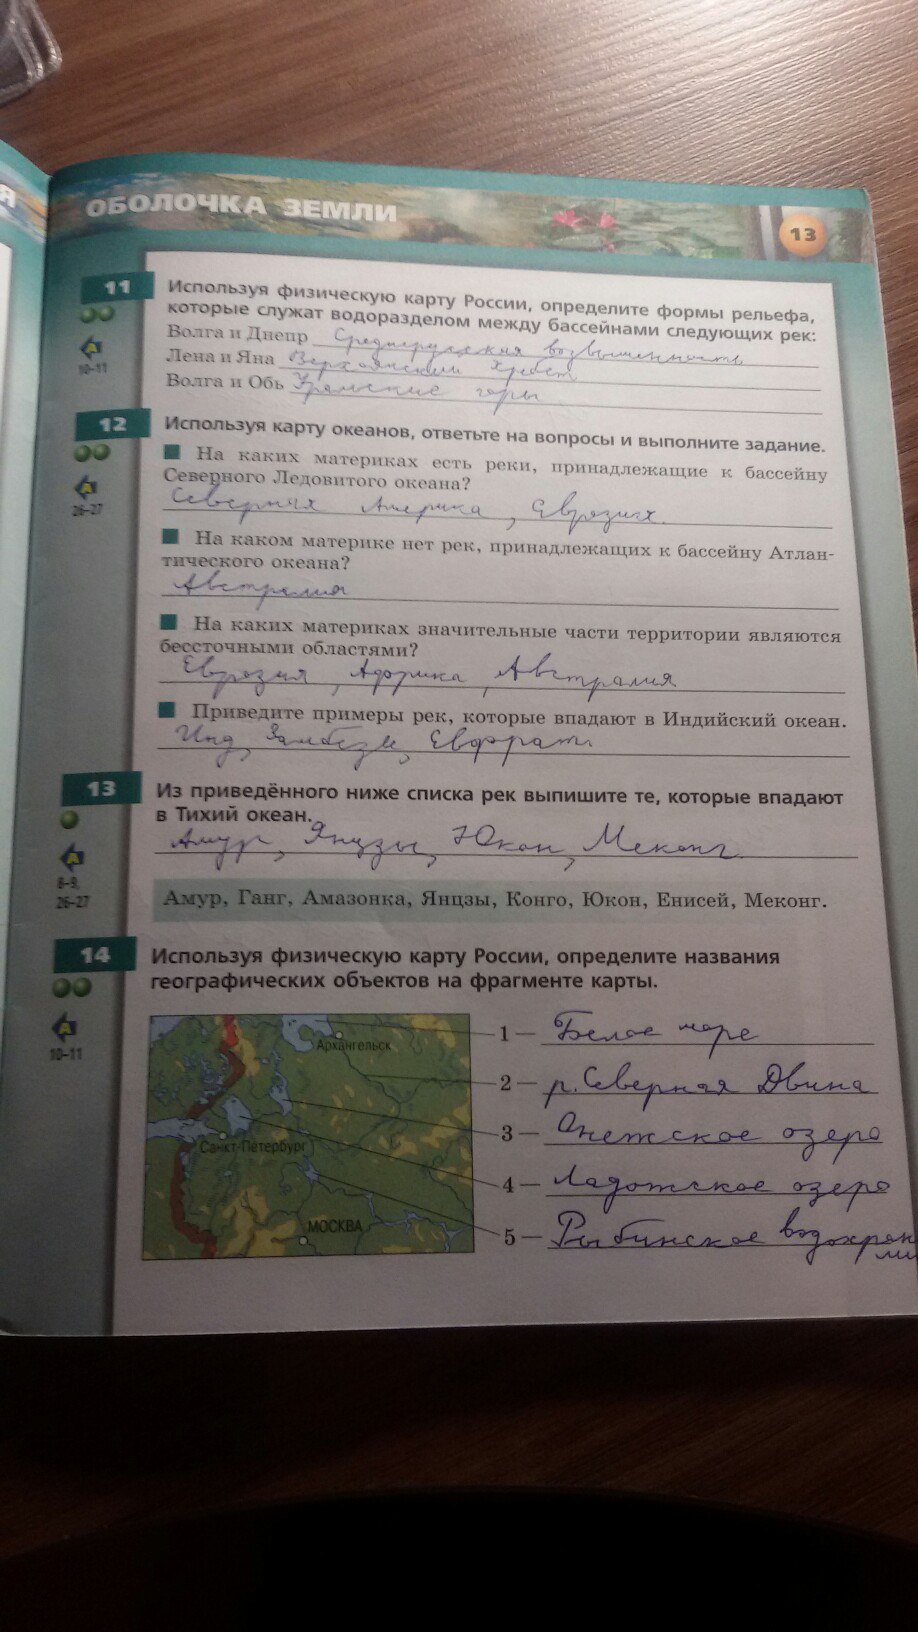 Я
ОБОЛОЧКА ЗЕМЛИ
13
11
Используя физическую карту России, определите формы рельефа,
которые служат водоразделом между бассейнами следующих рек:
Волга и Днепр Среднерусская возвышенность
Лена и Яна Верхоянский хребет
10–11
Волга и Обь Уральские горы
12
Используя карту океанов, ответьте на вопросы и выполните задание.
На каких материках есть реки, принадлежащие к бассейну
Северного Ледовитого океана?
26–27
Северная Америка, Евразия
На каком материке нет рек, принадлежащих к бассейну Атлан-
тического океана?
Австралия
На каких материках значительные части территории являются
бессточными областями?
Евразия, Африка, Австралия
Приведите примеры рек, которые впадают в Индийский океан.
Инд, Замбези, Евфрат.
13
Из приведённого ниже списка рек выпишите те, которые впадают
в Тихий океан.
Амур, Янцзы, Юкон, Меконг.
8–9,
26–27
Амур, Ганг, Амазонка, Янцзы, Конго, Юкон, Енисей, Меконг.
14
Используя физическую карту России, определите названия
географических объектов на фрагменте карты.
10–11
Архангельск
Санкт-Петербург
МОСКВА
1 — Белое море
2 — р. Северная Двина
3 — Онежское озеро
4 — Ладожское озеро
5 — Рыбинское водохран